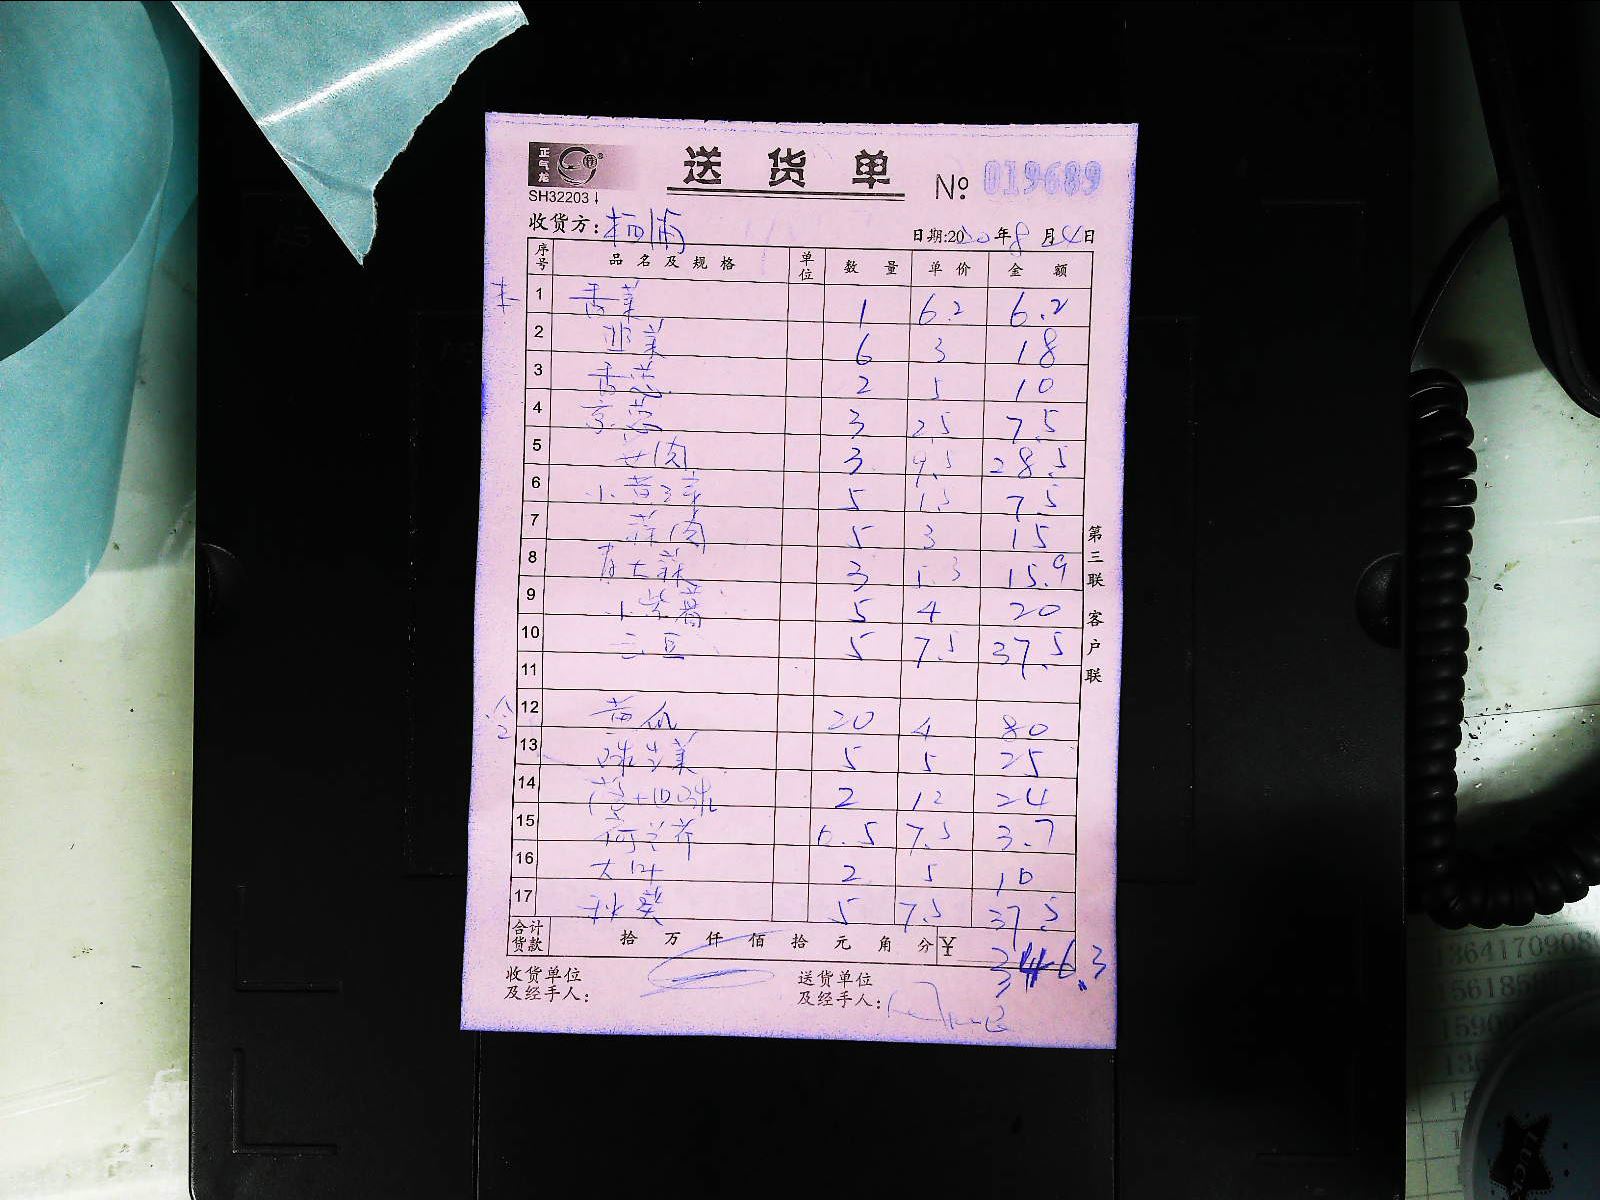 正气龙
送货单
№ 019689
SH32203
收货方：
日期:2020年8月4日
序号 品名及规格 单位 数量 单价 金额
1 香菜 1 6.2 6.2
2 韭菜 6 3 18
3 香葱 2 5 10
4 京葱 3 2.5 7.5
5 3 9.5 28.5
6 5 1.5 7.5
7 蒜肉 5 3 15
8 青大蒜 3 5.3 15.9
9 小紫薯 5 4 20
10 5 7.5 37.5
11
12 黄瓜 20 4 80
13 球生菜 5 5 25
14 2 12 24
15 0.5 7.5 3.7
16 2 5 10
17 秋葵 5 7.5 37.5
合计货款 拾 万 仟 佰 拾 元 角 分 ¥ 346.3
收货单位及经手人：
送货单位及经手人：
第三联 客户联